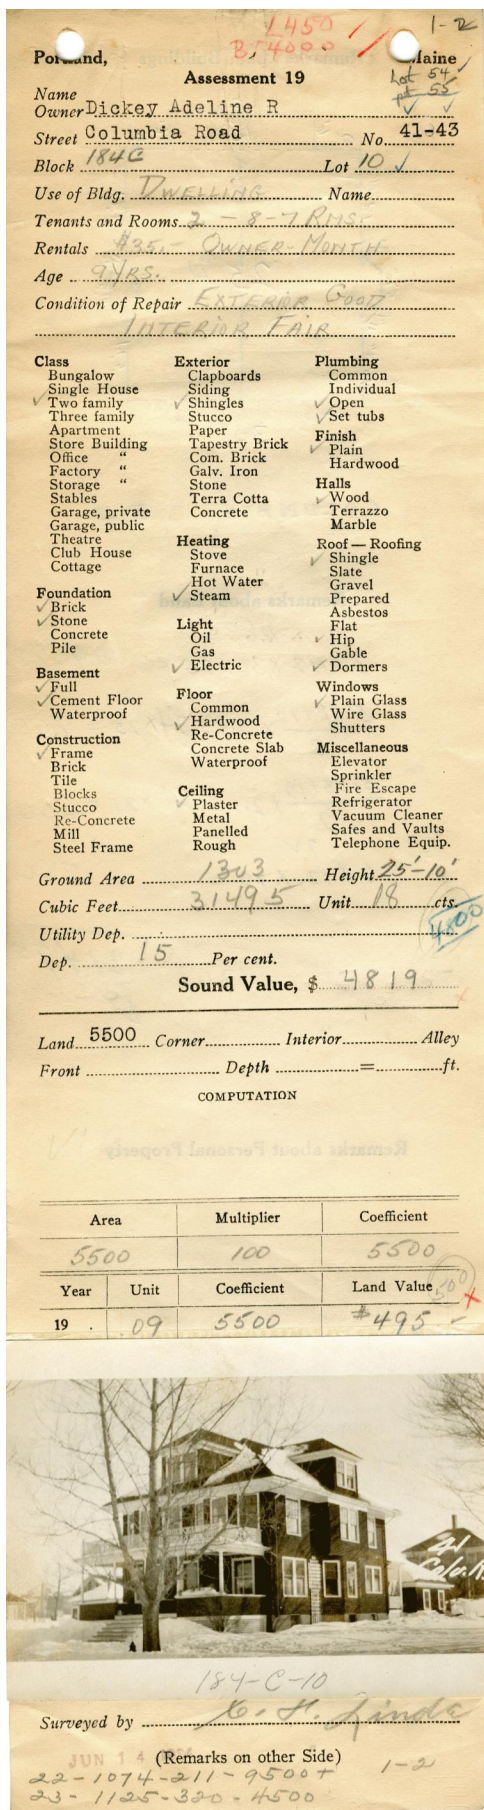 L450
B 4000
1-2
Portland, Maine
Lot 54
pt 55
Assessment 19
Name
Owner Dickey Adeline R
Street Columbia Road No. 41-43
Block 184C Lot 10
Use of Bldg. DWELLING Name
Tenants and Rooms 2 - 8-7 RMS.
Rentals $35.- OWNER-MONTH
Age 9 YRS.
Condition of Repair EXTERIOR GOOD
INTERIOR FAIR
Class
Bungalow
Single House
Two family
Three family
Apartment
Store Building
Office "
Factory "
Storage "
Stables
Garage, private
Garage, public
Theatre
Club House
Cottage
Foundation
Brick
Stone
Concrete
Pile
Basement
Full
Cement Floor
Waterproof
Construction
Frame
Brick
Tile
Blocks
Stucco
Re-Concrete
Mill
Steel Frame
Exterior
Clapboards
Siding
Shingles
Stucco
Paper
Tapestry Brick
Com. Brick
Galv. Iron
Stone
Terra Cotta
Concrete
Heating
Stove
Furnace
Hot Water
Steam
Light
Oil
Gas
Electric
Floor
Common
Hardwood
Re-Concrete
Concrete Slab
Waterproof
Ceiling
Plaster
Metal
Panelled
Rough
Plumbing
Common
Individual
Open
Set tubs
Finish
Plain
Hardwood
Halls
Wood
Terrazzo
Marble
Roof — Roofing
Shingle
Slate
Gravel
Prepared
Asbestos
Flat
Hip
Gable
Dormers
Windows
Plain Glass
Wire Glass
Shutters
Miscellaneous
Elevator
Sprinkler
Fire Escape
Refrigerator
Vacuum Cleaner
Safes and Vaults
Telephone Equip.
Ground Area 1303 Height 25'-10'
Cubic Feet 31495 Unit 18 cts.
4800
Utility Dep.
Dep. 15 Per cent.
Sound Value, $ 4819
Land 5500 Corner Interior Alley
Front Depth = ft.
COMPUTATION
Remarks about Personal Property
Area Multiplier Coefficient
5500 100 5500
Year Unit Coefficient Land Value
500
19 . .09 5500 $495-
41
Colu. R
184-C-10
Surveyed by C. H. Linda
JUN 14
(Remarks on other Side)
1-2
22-1074-211-9500+
23-1125-320-4500